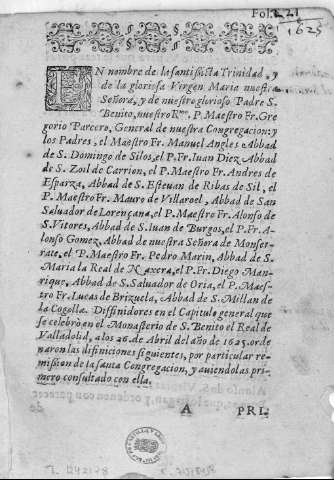 Fol. 1.
21
1625
EN nombre de la santissicta Trinidad, y
de la gloriosa Virgen Maria nuestra
Señora, y de nuestro glorioso Padre S.
Benito, nuestro Rmo. P. Maestro Fr. Gre
gorio Parcero, General de nuestra Congregacion: y
los Padres, el Maestro Fr. Manuel Angles Abbad
de S. Domingo de Silos, el P. Fr. Iuan Diez Abbad
de S. Zoil de Carrion, el P. Maestro Fr. Andres de
Esparza, Abbad de S. Esteuan de Ribas de Sil, el
P. Maestro Fr. Mauro de Villaroel, Abbad de San
Saluador de Lorençana, el P. Maestro Fr. Alonso de
S. Vitores, Abbad de S. Iuan de Burgos, el P. Fr. A-
lonso Gomez, Abbad de nuestra Señora de Monser-
rate, el P. Maestro Fr. Pedro Marin, Abbad de S.
Maria la Real de Naxera, el P. Fr. Diego Man-
rique, Abbad de S. Saluador de Oria, el P. Maes-
tro Fr. Lucas de Brizuela, Abbad de S. Millan de
la Cogolla. Diffinidores en el Capitulo general que
se celebrò en el Monasterio de S. Benito el Real de
Valladolid, a los 26. de Abril del año de 1625. orde
naron las difiniciones siguientes, por particular re-
mission de la santa Congregacion, y auiendolas pri-
mero consultado con ella.
A PRI-